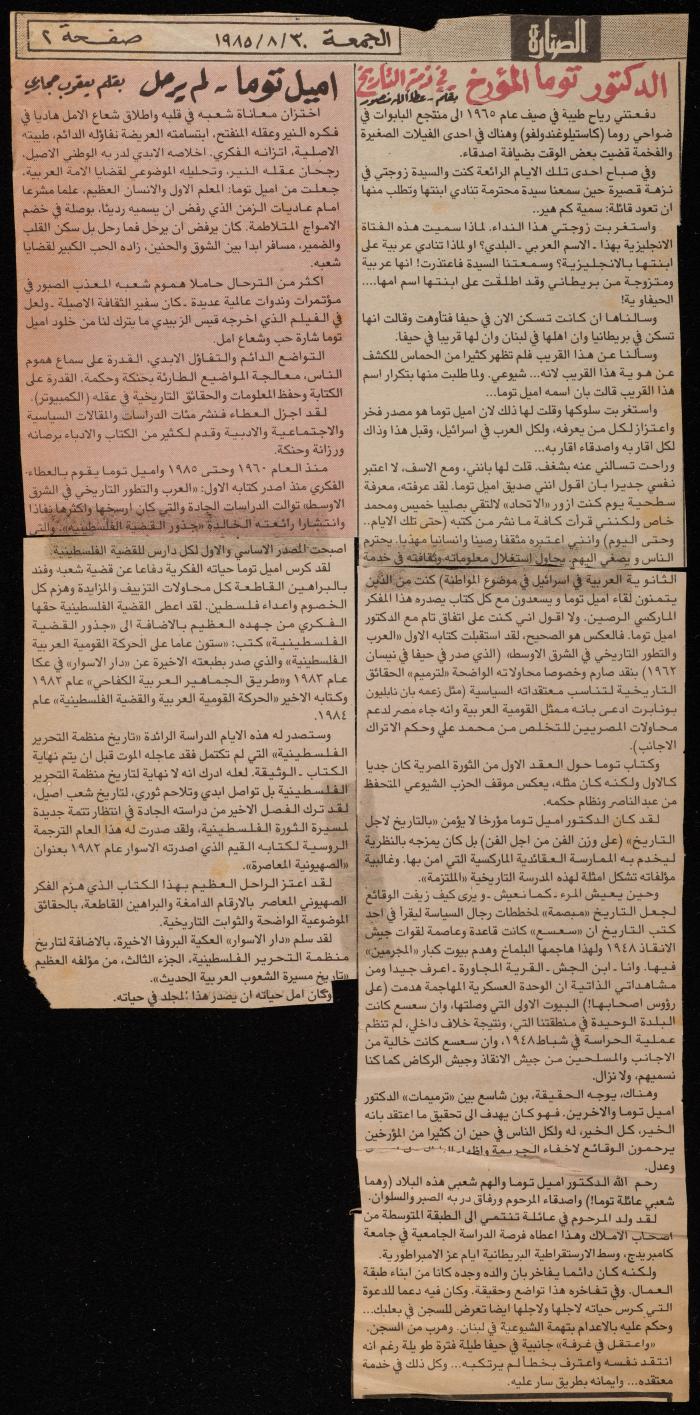 الصنارة
الجمعة ٣٠/٨/١٩٨٥ صفحة ٢
الدكتور توما المؤرخ في ذمة التاريخ
بقلم - عطاالله منصور
دفعتني رياح طيبة في صيف عام ١٩٦٥ الى منتجع البابوات في
ضواحي روما (كاستيلوغندولفو) وهناك في احدى الفيلات الصغيرة
والفخمة قضيت بعض الوقت بضيافة اصدقاء.
وفي صباح احدى تلك الايام الرائعة كنت والسيدة زوجتي في
نزهة قصيرة حين سمعنا سيدة محترمة تنادي ابنتها وتطلب منها
ان تعود قائلة: سمية كم هير..
واستغربت زوجتي هذا النداء. لماذا سميت هذه الفتاة
الانجليزية بهذا - الاسم العربي - البلدي؟ او لماذا تنادي عربية على
ابنتها بالانجليزية؟ وسمعتنا السيدة فاعتذرت! انها عربية
ومتزوجة من بريطاني وقد اطلقت على ابنتها اسم امها....
الحيفاوية!
وسالناها ان كانت تسكن الان في حيفا فتأوهت وقالت انها
تسكن في بريطانيا وان اهلها في لبنان وان لها قريبا في حيفا.
وسألنا عن هذا القريب فلم تظهر كثيرا من الحماس للكشف
عن هوية هذا القريب لانه... شيوعي. ولما طلبت منها بتكرار اسم
هذا القريب قالت بان اسمه اميل توما...
واستغربت سلوكها وقلت لها ذلك لان اميل توما هو مصدر فخر
واعتزاز لكل من يعرفه، ولكل العرب في اسرائيل، وقبل هذا وذاك
لكل اقاربه واصدقاء اقاربه...
وراحت تسالني عنه بشغف. قلت لها بانني، ومع الاسف، لا اعتبر
نفسي جديرا بان اقول انني صديق اميل توما. لقد عرفته، معرفة
سطحية يوم كنت ازور «الاتحاد» لالتقي بصليبا خميس ومحمد
خاص ولكنني قرأت كافة ما نشر من كتبه (حتى تلك الايام..
وحتى اليوم) وانني اعتبره مثقفا رصينا وانسانيا مهذبا. يحترم
الناس و يصغي اليهم. يحاول استغلال معلوماته وثقافته في خدمة
الثانوية العربية في اسرائيل في موضوع المواطنة) كنت من الذين
يتمنون لقاء اميل توما و يسعدون مع كل كتاب يصدره هذا المفكر
الماركسي الرصين. ولا اقول اني كنت على اتفاق تام مع الدكتور
اميل توما. فالعكس هو الصحيح، لقد استقبلت كتابه الاول «العرب
والتطور التاريخي في الشرق الاوسط» (الذي صدر في حيفا في نيسان
١٩٦٢) بنقد صارم وخصوصا محاولاته الواضحة «لترميم» الحقائق
التاريخية لتناسب معتقداته السياسية (مثل زعمه بان نابليون
بونابرت ادعى بانه ممثل القومية العربية وانه جاء مصر لدعم
محاولات المصريين للتخلص من محمد علي وحكم الاتراك
الاجانب).
وكتاب توما حول العقد الاول من الثورة المصرية كان جديا
كالاول ولكنه كان مثله، يعكس موقف الحزب الشيوعي المتحفظ
من عبد الناصر ونظام حكمه.
لقد كان الدكتور اميل توما مؤرخا لا يؤمن «بالتاريخ لاجل
التاريخ» (على وزن الفن من اجل الفن) بل كان يمزجه بالنظرية
ليخدم به الممارسة العقائدية الماركسية التي امن بها. وغالبية
مؤلفاته تشكل امثلة لهذه المدرسة التاريخية «الملتزمة».
وحين يعيش المرء - كما نعيش - و يرى كيف زيفت الوقائع
لجعل التاريخ «مبصمة» لمخططات رجال السياسة ليقرأ في احد
كتب التاريخ ان «سعسع» كانت قاعدة وعاصمة لقوات جيش
الانقاذ ١٩٤٨ ولهذا هاجمها البلماخ وهدم بيوت كبار «المجرمين»
فيها. وانا - ابن الجش - القرية المجاورة - اعرف جيدا ومن
مشاهداتي الذاتية ان الوحدة العسكرية المهاجمة هدمت (على
رؤوس اصحابها!) البيوت الاولى التي وصلتها، وان سعسع كانت
البلدة الوحيدة في منطقتنا التي، ونتيجة خلاف داخلي، لم تنظم
عملية الحراسة في شباط ١٩٤٨، وان سعسع كانت خالية من
الاجانب والمسلحين من جيش الانقاذ وجيش الركاض كما كنا
نسميهم، ولا نزال.
وهناك، يوجه الحقيقة، بون شاسع بين «ترميمات» الدكتور
اميل توما والاخرين. فهو كان يهدف الى تحقيق ما اعتقد بانه
الخير، كل الخير، له ولكل الناس في حين ان كثيرا من المؤرخين
يرحمون الوقائع لاخفاء الجريمة
وعدل.
رحم الله الدكتور اميل توما والهم شعبي هذه البلاد (وهما
شعبي عائلة توما!) واصدقاء المرحوم ورفاق دربه الصبر والسلوان.
لقد ولد المرحوم في عائلة تنتمي الى الطبقة المتوسطة من
اصحاب الاملاك وهذا اعطاه فرصة الدراسة الجامعية في جامعة
كامبريدج، وسط الارستقراطية البريطانية ايام عز الامبراطورية.
ولكنه كان دائما يفاخر بان والده وجده كانا من ابناء طبقة
العمال. وفي تفاخره هذا تواضع وحقيقة. وكان فيه دعما للدعوة
التي كرس حياته لاجلها ولاجلها ايضا تعرض للسجن في بعلبك...
وحكم عليه بالاعدام بتهمة الشيوعية في لبنان. وهرب من السجن.
«واعتقل في غرفة» جانبية في حيفا طيلة فترة طويلة رغم انه
انتقد نفسه واعترف بخطأ لم يرتكبه... وكل ذلك في خدمة
معتقده... وايمانه بطريق سار عليه.
اميل توما - لم يرحل بقلم يعقوب حجازي
اختزان معاناة شعبه في قلبه واطلاق شعاع الامل هاديا في
فكره النير وعقله المنفتح، ابتسامته العريضة تفاؤله الدائم، طيبته
الاصلية، اتزانه الفكري. اخلاصه الابدي لدربه الوطني الاصيل،
رجحان عقله النير، وتحليله الموضوعي لقضايا الامة العربية،
جعلت من اميل توما: المعلم الاول والانسان العظيم، علما مشرعا
امام عاديات الزمن الذي رفض ان يسميه رديئا، بوصلة في خضم
الامواج المتلاطمة. كان يرفض ان يرحل فما رحل بل سكن القلب
والضمير، مسافر ابدا بين الشوق والحنين، زاده الحب الكبير لقضايا
شعبه.
اكثر من الترحال حاملا هموم شعبه المعذب الصبور في
مؤتمرات وندوات عالمية عديدة - كان سفير الثقافة الاصيلة - ولعل
في الفيلم الذي اخرجه قيس الزبيدي ما يترك لنا من خلود اميل
توما شارة حب وشعاع امل.
التواضع الدائم والتفاؤل الابدي، القدرة على سماع هموم
الناس، معالجة المواضيع الطارئة بحنكة وحكمة. القدرة على
الكتابة وحفظ المعلومات والحقائق التاريخية في عقله (الكمبيوتر).
لقد اجزل العطاء فنشر مئات الدراسات والمقالات السياسية
والاجتماعية والادبية وقدم لكثير من الكتاب والادباء برصانه
ورزانة وحنكة.
منذ العام ١٩٦٠ وحتى ١٩٨٥ واميل توما يقوم بالعطاء
الفكري منذ اصدر كتابه الاول: «العرب والتطور التاريخي في الشرق
الاوسط» توالت الدراسات الجادة والتي كان ارسخها واكثرها نفاذا
وانتشارا رائعته الخالدة «جذور القضية الفلسطينية». والتي
اصبحت المصدر الاساسي والاول لكل دارس للقضية الفلسطينية.
لقد كرس اميل توما حياته الفكرية دفاعا عن قضية شعبه وفند
بالبراهين القاطعة كل محاولات التزييف والمزايدة وهزم كل
الخصوم واعداء فلسطين. لقد اعطى القضية الفلسطينية حقها
الفكري من جهده العظيم بالاضافة الى «جذور القضية
الفلسطينية» كتب: «ستون عاما على الحركة القومية العربية
الفلسطينية» والذي صدر بطبعته الاخيرة عن «دار الاسوار» في عكا
عام ١٩٨٣ و«طريق الجماهير العربية الكفاحي» عام ١٩٨٢
وكتابه الاخير «الحركة القومية العربية والقضية الفلسطينية» عام
١٩٨٤.
وستصدر له هذه الايام الدراسة الرائدة «تاريخ منظمة التحرير
الفلسطينية» التي لم تكتمل فقد عاجله الموت قبل ان يتم نهاية
الكتاب - الوثيقة. لعله ادرك انه لا نهاية لتاريخ منظمة التحرير
الفلسطينية بل تواصل ابدي وتلاحم ثوري، لتاريخ شعب اصيل،
لقد ترك الفصل الاخير من دراسته الجادة في انتظار تتمة جديدة
لمسيرة الثورة الفلسطينية، ولقد صدرت له هذا العام الترجمة
الروسية لكتابه القيم الذي اصدرته الاسوار عام ١٩٨٢ بعنوان
«الصهيونية المعاصرة».
لقد اعتز الراحل العظيم بهذا الكتاب الذي هزم الفكر
الصهيوني المعاصر بالارقام الدامغة والبراهين القاطعة، بالحقائق
الموضوعية الواضحة والثوابت التاريخية.
لقد سلم «دار الاسوار» العكية البروفا الاخيرة، بالاضافة لتاريخ
منظمة التحرير الفلسطينية، الجزء الثالث، من مؤلفه العظيم
«تاريخ مسيرة الشعوب العربية الحديث».
وكان امل حياته ان يصدر هذا المجلد في حياته.